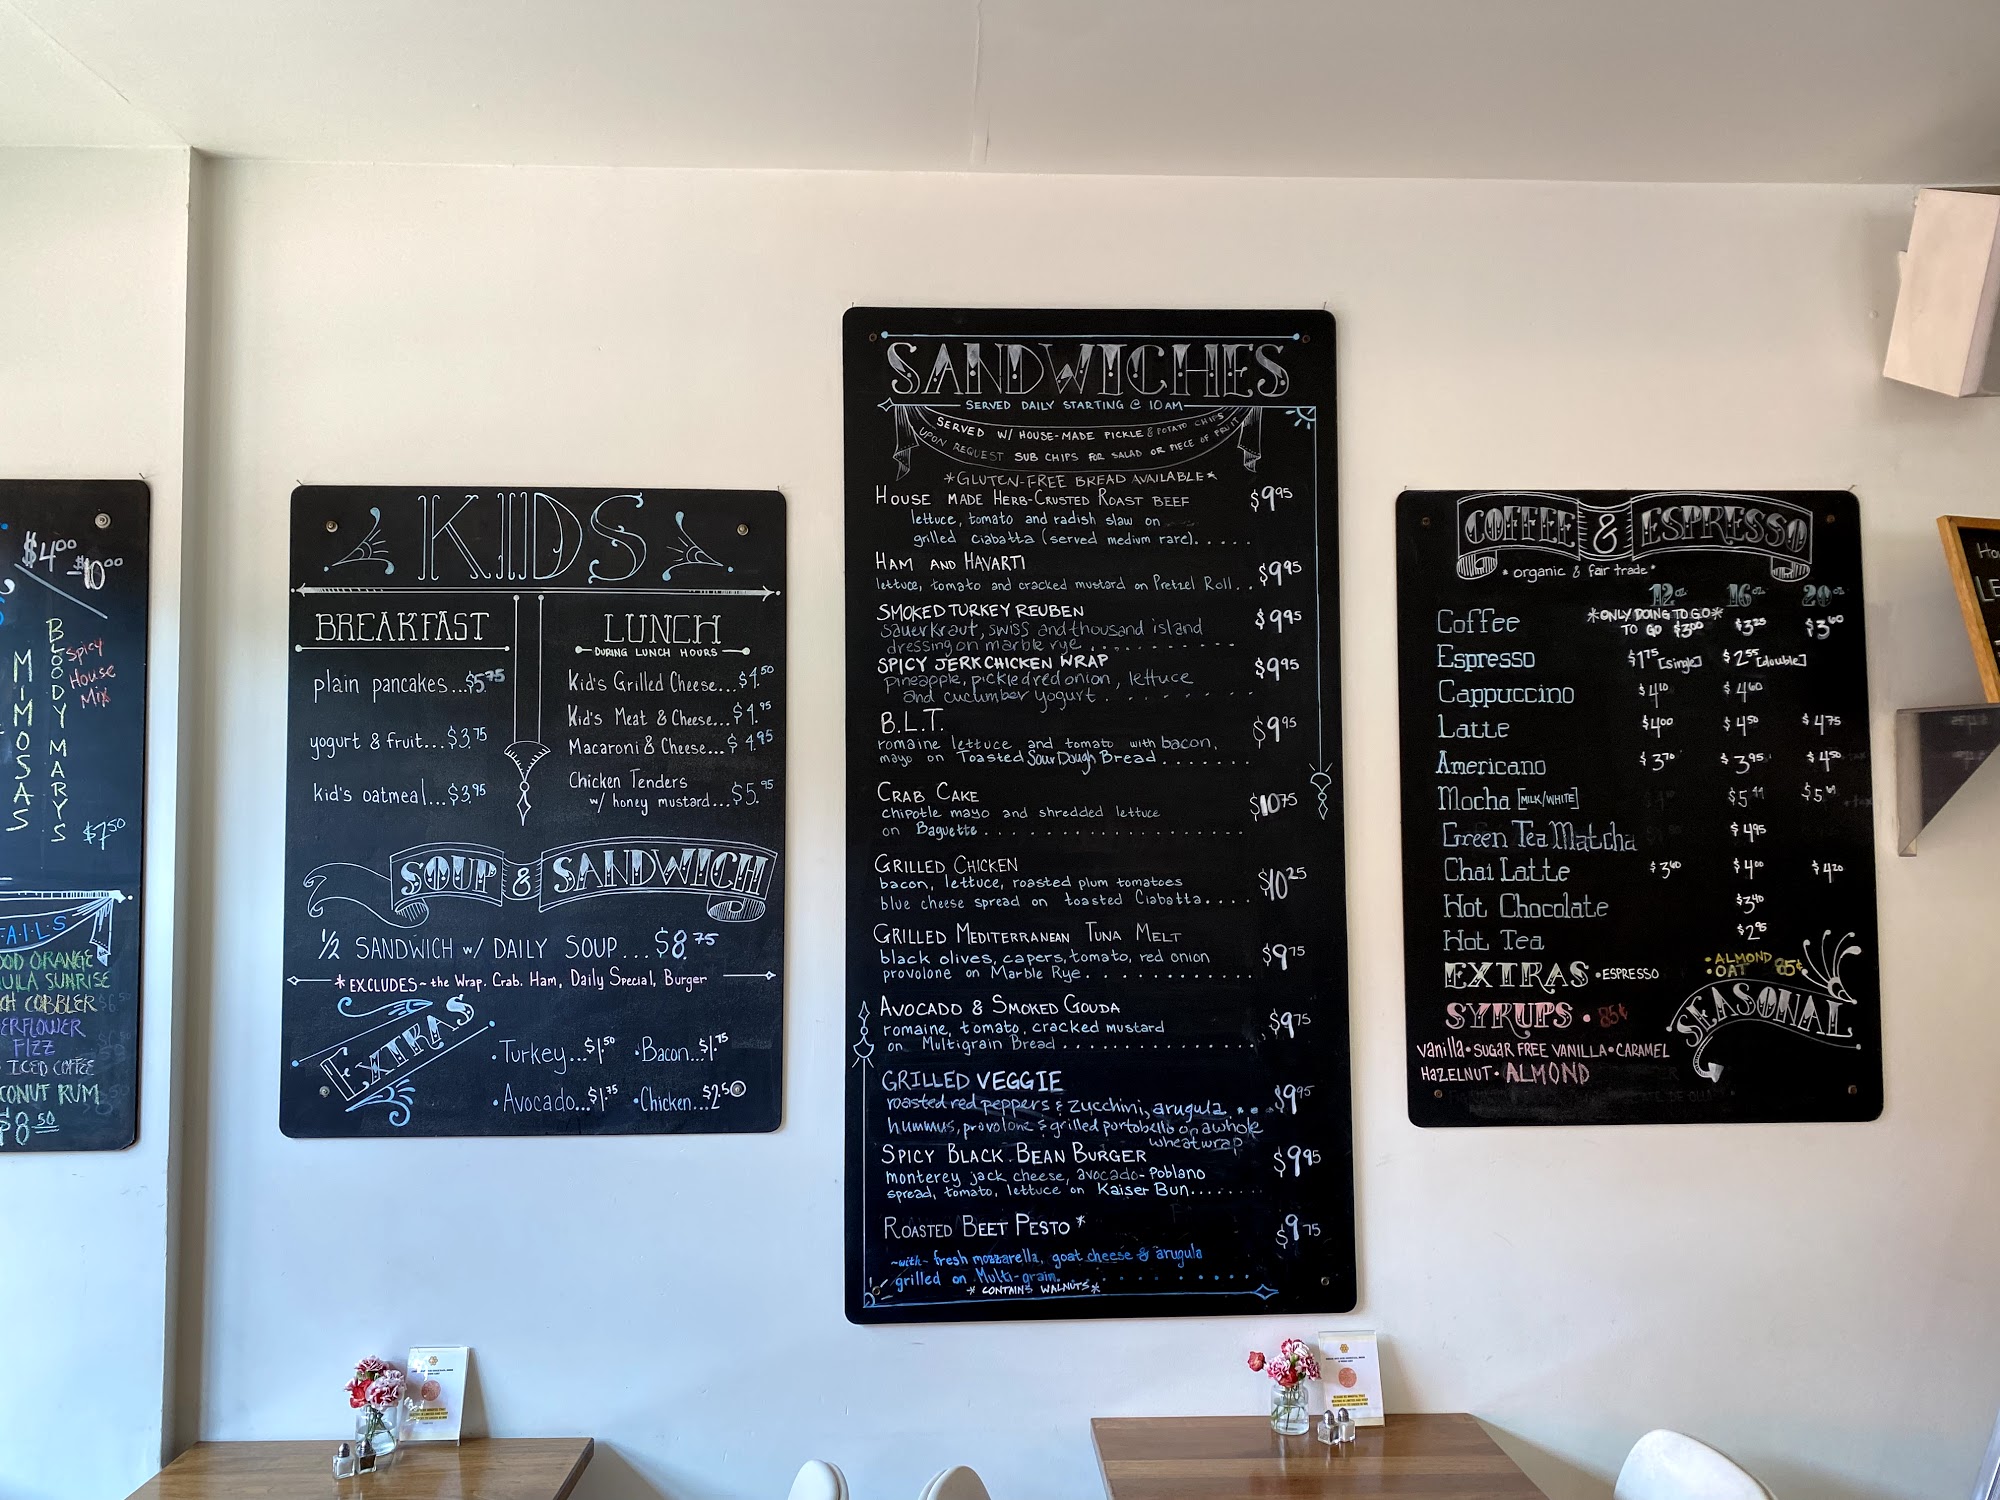 $4.00
$10.00
MIMOSAS
BLOODY MARYS
Spicy
House
Mix
$7.50
OD ORANGE
UILA SUNRISE
CH COBBLER
ERFLOWER
FIZZ
ICED COFFEE
CONUT RUM
$8.50
KIDS
BREAKFAST
plain pancakes...$5.75
yogurt & fruit...$3.75
kid's oatmeal...$3.95
LUNCH
DURING LUNCH HOURS
Kid's Grilled Cheese...$4.50
Kid's Meat & Cheese...$4.95
Macaroni & Cheese...$4.95
Chicken Tenders
w/ honey mustard...$5.95
SOUP & SANDWICH
1/2 SANDWICH w/ DAILY SOUP...$8.75
*EXCLUDES~ the Wrap. Crab. Ham, Daily Special, Burger
EXTRAS
•Turkey...$1.50 •Bacon...$1.75
•Avocado...$1.75 •Chicken...$2.50
SANDWICHES
SERVED DAILY STARTING @ 10AM
SERVED W/ HOUSE-MADE PICKLE & POTATO CHIPS
UPON REQUEST SUB CHIPS FOR SALAD OR PIECE OF FRUIT
*GLUTEN-FREE BREAD AVAILABLE*
HOUSE MADE HERB-CRUSTED ROAST BEEF $9.95
lettuce, tomato and radish slaw on
grilled ciabatta (served medium rare).....
HAM AND HAVARTI $9.95
lettuce, tomato and cracked mustard on Pretzel Roll..
SMOKED TURKEY REUBEN $9.95
sauerkraut, swiss and thousand island
dressing on marble rye..........
SPICY JERK CHICKEN WRAP $9.95
pineapple, pickled red onion, lettuce
and cucumber yogurt........
B.L.T. $9.95
romaine lettuce and tomato with bacon,
mayo on Toasted Sour Dough Bread.......
CRAB CAKE $10.75
chipotle mayo and shredded lettuce
on Baguette....................
GRILLED CHICKEN $10.25
bacon, lettuce, roasted plum tomatoes
blue cheese spread on toasted Ciabatta....
GRILLED MEDITERRANEAN TUNA MELT $9.75
black olives, capers, tomato, red onion
provolone on Marble Rye.............
AVOCADO & SMOKED GOUDA $9.75
romaine, tomato, cracked mustard
on Multigrain Bread................
GRILLED VEGGIE $9.95
roasted red peppers & zucchini, arugula...
hummus, provolone & grilled portobello on a whole
wheat wrap
SPICY BLACK BEAN BURGER $9.95
monterey jack cheese, avocado-Poblano
spread, tomato, lettuce on Kaiser Bun.......
ROASTED BEET PESTO* $9.75
~with~ fresh mozzarella, goat cheese & arugula
grilled on Multi-grain..........
* CONTAINS WALNUTS*
COFFEE & ESPRESSO
* organic & fair trade *
12 oz. 16 oz. 20 oz.
*ONLY DOING TO GO*
Coffee TO GO $3.00 $3.25 $3.60
Espresso $1.75 [single] $2.55 [double]
Cappuccino $4.10 $4.60
Latte $4.00 $4.50 $4.75
Americano $3.70 $3.95 $4.50
Mocha [MILK/WHITE]
Green Tea Matcha $4.95
Chai Latte $3.60 $4.00 $4.20
Hot Chocolate $3.40
Hot Tea $2.95
EXTRAS •ESPRESSO •ALMOND
•OAT 85¢
SYRUPS • 85¢
vanilla • SUGAR FREE VANILLA • CARAMEL
HAZELNUT • ALMOND
SEASONAL